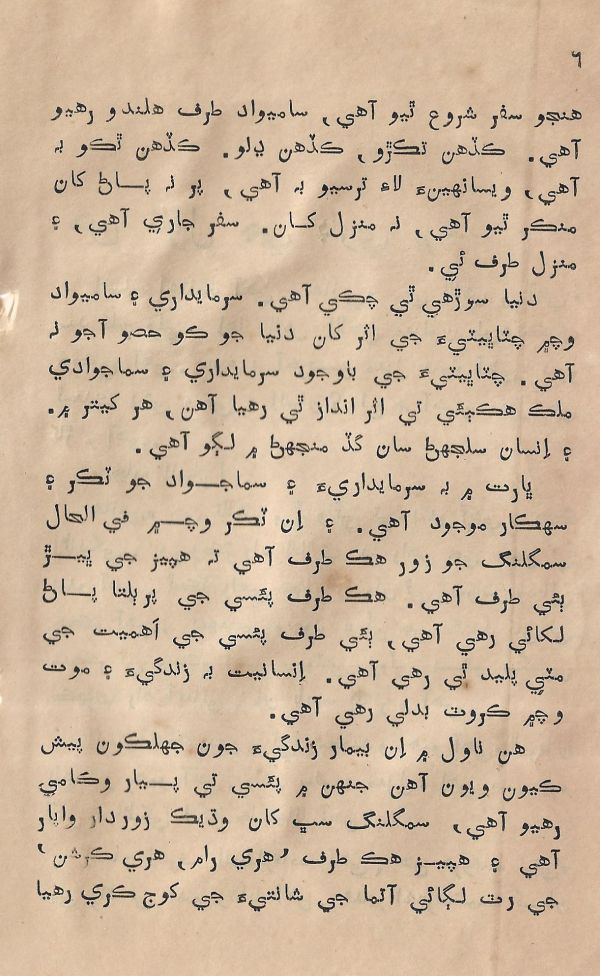 ٦
هنجو سفر شروع ٿيو آهي، ساميواد طرف هلندو رهيو
آهي. ڪڏهن تڪڙو، ڪڏهن ڍلو. ڪڏهن ٿڪو به
آهي، ويسانهينءَ لاءِ ترسيو به آهي، پر نه پاڻ کان
منڪر ٿيو آهي، نه منزل کان. سفر جاري آهي، ۽
منزل طرف ئي.
دنيا سوڙهي ٿي چڪي آهي. سرمايداري ۽ ساميواد
وچ۾ چٽاڀيٽيءَ جي اثر کان دنيا جو ڪو حصو آجو نه
آهي. چٽاڀيٽيءَ جي باوجود سرمايداري ۽ سماجوادي
ملڪ هڪٻئي تي اثر انداز ٿي رهيا آهن، هر کيتر ۾.
۽ اِنسان سلجهڻ سان گڏ منجهڻ ۾ لڳو آهي.
ڀارت ۾ به سرمايداريءَ ۽ سماجواد جو ٽڪر ۽
سهڪار موجود آهي. ۽ اِن ٽڪر وچ۾ في الحال
سمگلنگ جو زور هڪ طرف آهي ته هپيز جي ڀيڙ
ٻئي طرف آهي. هڪ طرف پئسي جي پربلتا پاڻ
لڪائي رهي آهي، ٻئي طرف پئسي جي اَهميت جي
مٽي پليد ٿي رهي آهي. اِنسانيت به زندگيءَ ۽ موت
وچ۾ ڪروٽ بدلي رهي آهي.
هن ناول ۾ اِن بيمار زندگيءَ جون جهلڪون پيش
ڪيون ويون آهن جنهن ۾ پئسي تي پيار وڪامي
رهيو آهي، سمگلنگ سڀ کان وڌيڪ زوردار واپار
آهي ۽ هپيز هڪ طرف 'هري رام، هري ڪرشن'
جي رٽ لڳائي آتما جي شانتيءَ جي کوج ڪري رهيا